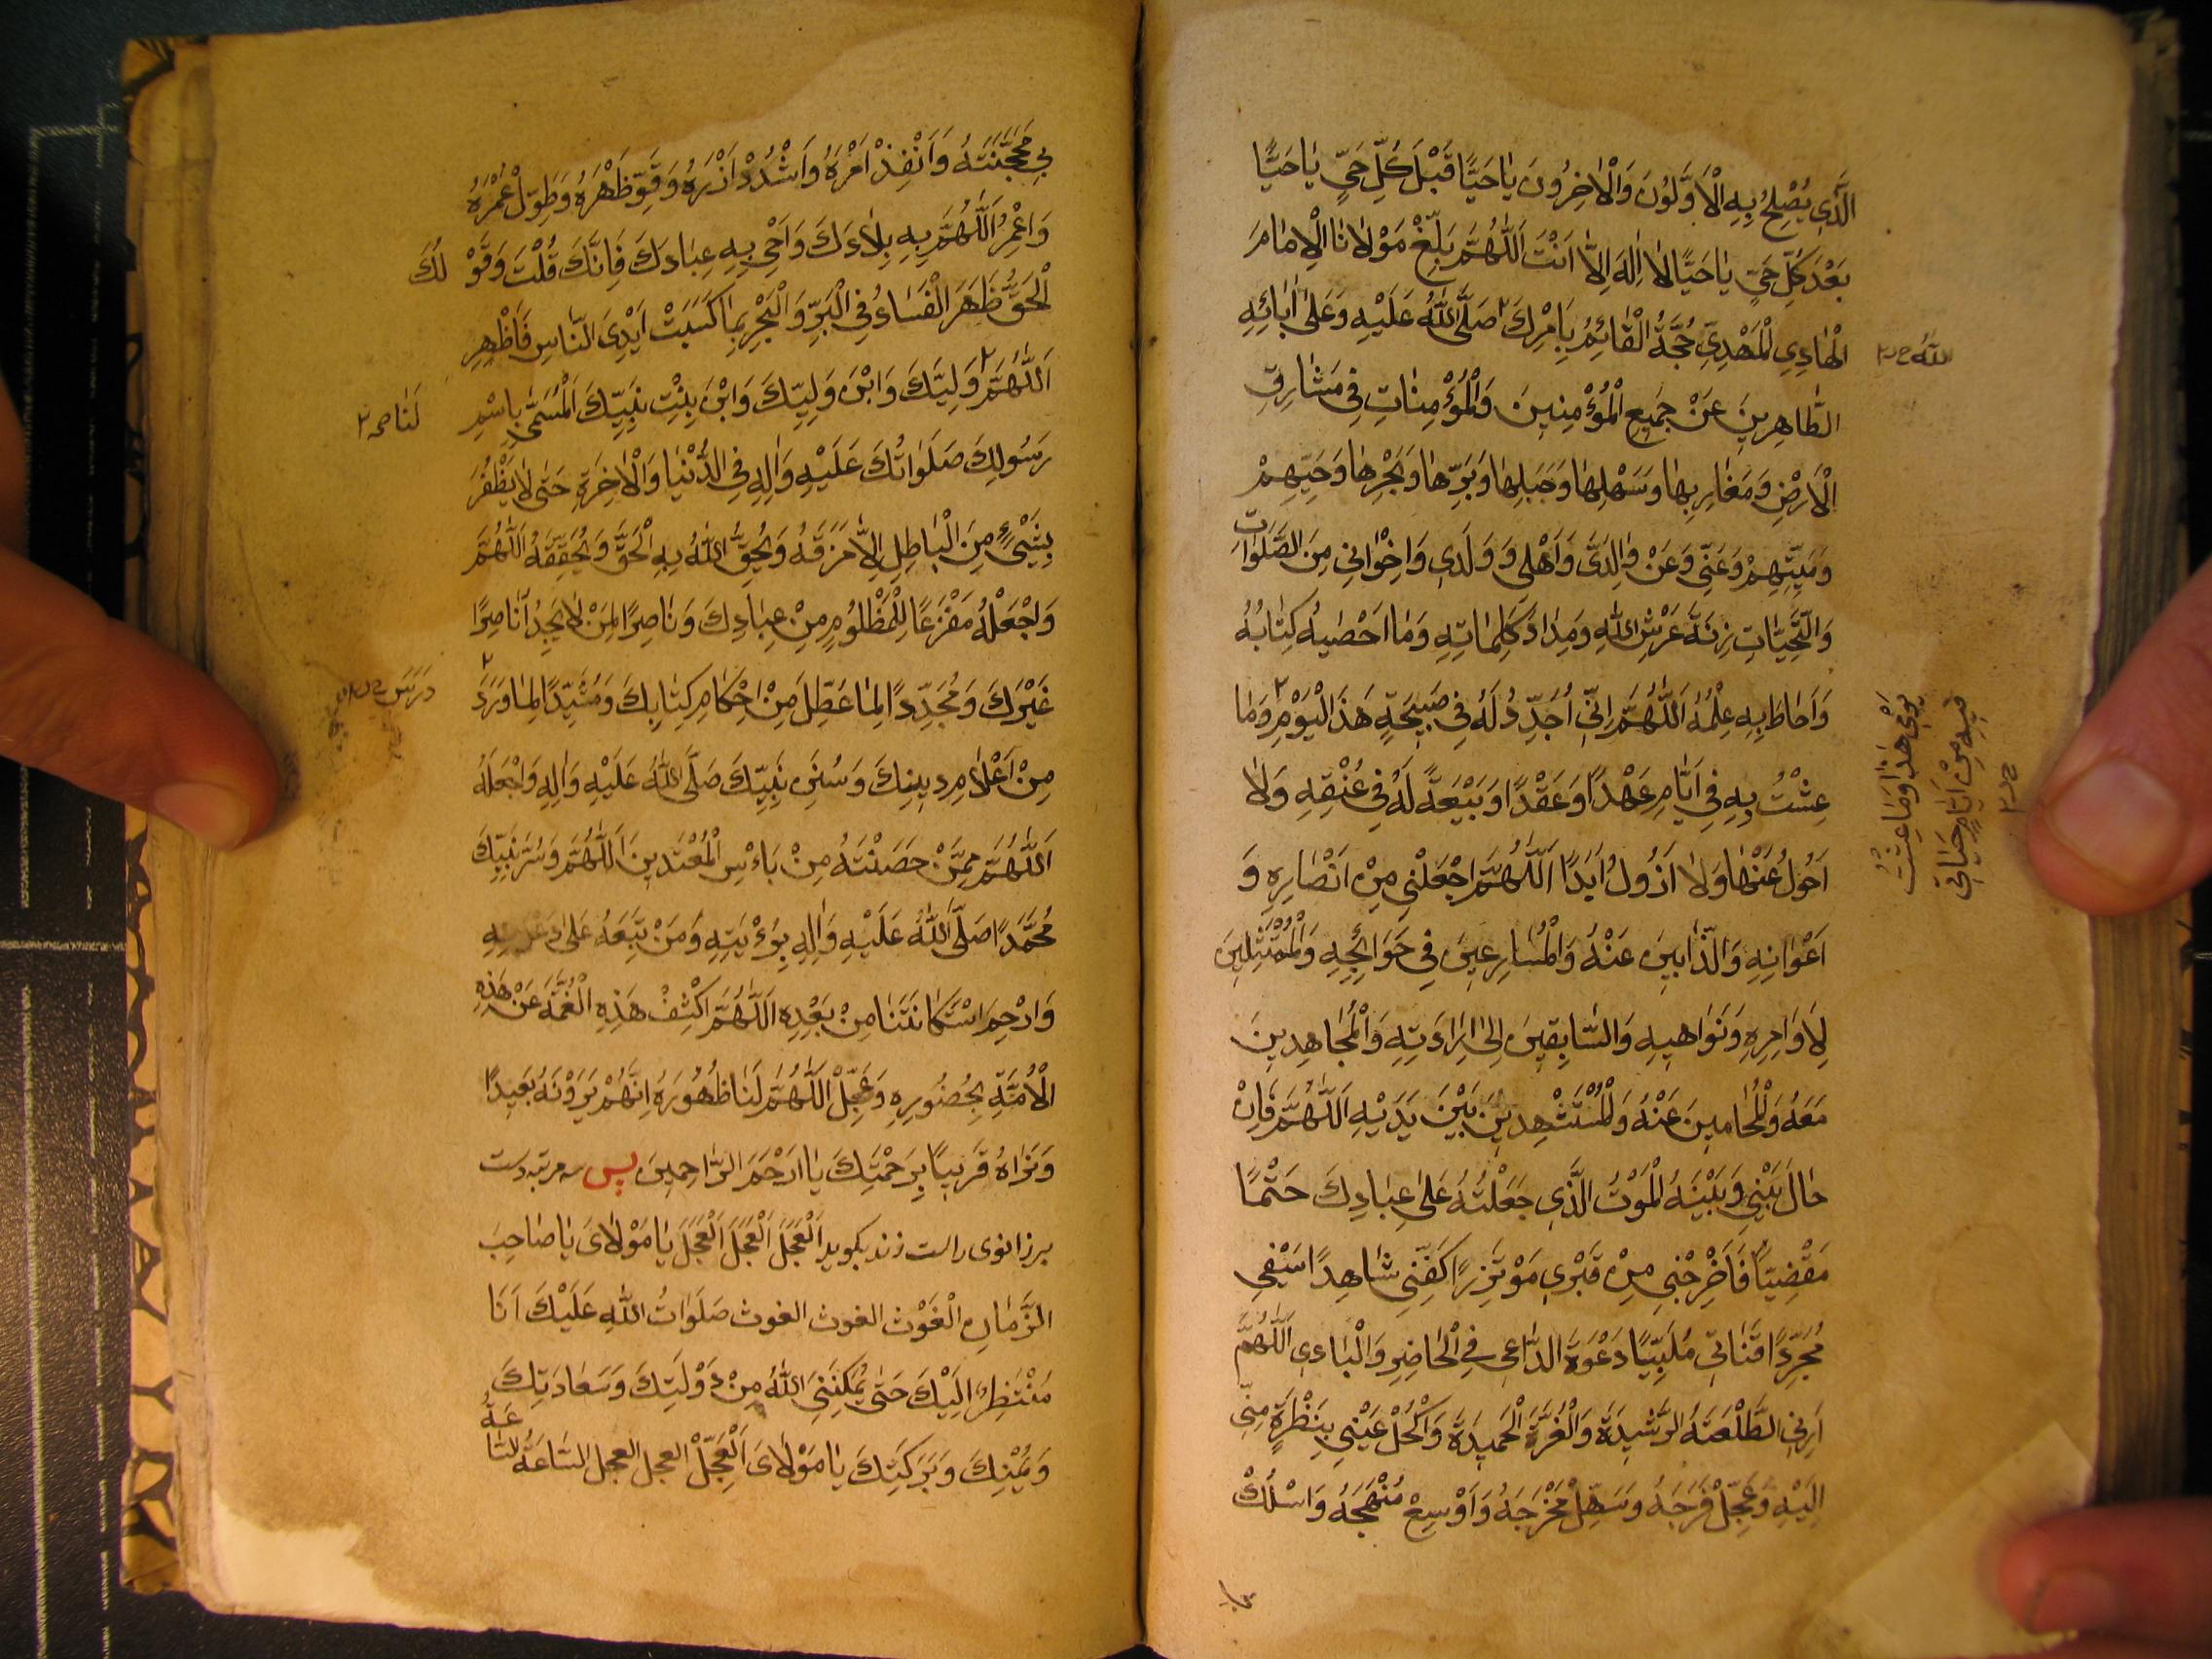 الَّذِي يُصْلِحُ بِهِ الْأَوَّلُونَ وَالْاٰخِرُونَ يَاحَيًّا قَبْلَ كُلِّ حَيٍّ يَاحَيًّا
بَعْدَ كُلِّ حَيٍّ يَاحَيًّا لَا اِلٰهَ اِلَّا اَنْتَ اَللّٰهُمَّ بَلِّغْ مَوْلَانَا الْاِمَامَ
الْهَادِي الْمَهْدِيِّ حُجَّةُ الْقَائِمُ بِاَمْرِكَ صَلَّى اللهُ عَلَيْهِ وَعَلَى اٰبَائِهِ
الله
الطَّاهِرِينَ عَنْ جَمِيعِ الْمُؤْمِنِينَ وَالْمُؤْمِنَاتِ فِي مَشَارِقِ
الْاَرْضِ وَمَغَارِبِهَا وَسَهْلِهَا وَجَبَلِهَا وَبَرِّهَا وَبَحْرِهَا وَحَيِّهِمْ
وَمَيِّتِهِمْ وَعَنِّي وَعَنْ وَالِدَيَّ وَاَهْلِي وَوَلَدِي وَاِخْوَانِي مِنَ الصَّلَوَاتِ
وَالتَّحِيَّاتِ زِنَةَ عَرْشِ اللهِ وَمِدَادَ كَلِمَاتِهِ وَمَا اَحْصٰيهُ كِتَابُهُ
وَاَحَاطَ بِهِ عِلْمُهُ اَللّٰهُمَّ اِنِّي اُجَدِّدُ لَهُ فِي صَبِيحَةِ هَذَا الْيَوْمِ وَمَا
يَوْمِي هٰذَا وَمَا عِشْتُ
فِيهِ مِنْ اَيَّامِ حَيَاتِي
عِشْتُ بِهِ فِي اَيَّامِ عَهْدًا وَعَقْدًا وَبَيْعَةً لَهُ فِي عُنْقِهِ وَلَا
اَحُولُ عَنْهَا وَلَا اَزُولُ اَبَدًا اَللّٰهُمَّ اجْعَلْنِي مِنْ اَنْصَارِهِ وَ
اَعْوَانِهِ وَالذَّابِّينَ عَنْهُ وَالْمُسَارِعِينَ فِي حَوَائِجِهِ وَالْمُمْتَثِلِينَ
لِاَوَامِرِهِ وَنَوَاهِيهِ وَالسَّابِقِينَ اِلَى اِرَاءَتِهِ وَالْمُجَاهِدِينَ
مَعَهُ وَالْمُحَامِينَ عَنْهُ وَالْمُسْتَشْهِدِينَ بَيْنَ يَدَيْهِ اَللّٰهُمَّ فَاِنْ
حَالَ بَيْنِي وَبَيْنَهُ الْمَوْتُ الَّذِي جَعَلْتَهُ عَلَى عِبَادِكَ حَتْمًا
مَقْضِيًّا فَاَخْرِجْنِي مِنْ قَبْرِي مَوْتَزِرًا كَفَنِي شَاهِدًا سَيْفِي
مُجَرِّدًا قَنَاتِي مُلَبِّيًا دَعْوَةَ الدَّاعِي فِي الْحَاضِرِ وَالْبَادِي اَللّٰهُمَّ
اَرِنِي الطَّلْعَتَهُ الرَّشِيدَةَ وَالْغُرَّةَ الْحَمِيدَةَ وَاكْحُلْ عَيْنِي بِنَظْرَةٍ مِنِّي
اِلَيْهِ وَعَجِّلْ فَرَجَهُ وَسَهِّلْ مَخْرَجَهُ وَاَوْسِعْ مَنْهَجَهُ وَاسْلُكْ
بِي مَحَجَّتَهُ وَاَنْفِذْ اَمْرَهُ وَاشْدُدْ اَزْرَهُ وَقَوِّ ظَهْرَهُ وَطَوِّلْ عُمْرَهُ
وَاعْمُرِ اَللّٰهُمَّ بِهِ بِلَادَكَ وَاَحْيِ بِهِ عِبَادَكَ فَاِنَّكَ قُلْتَ وَقَوْ لُكَ
الْحَقُّ ظَهَرَ الْفَسَادُ فِي الْبَرِّ وَالْبَحْرِ بِمَا كَسَبَتْ اَيْدِي النَّاسِ فَاَظْهِرِ
اَللّٰهُمَّ وَلِيَّكَ وَابْنَ وَلِيِّكَ وَابْنَ بِنْتِ نَبِيِّكَ الْمُسَمّٰى بِاسْمِ
لَنَا
رَسُولِكَ صَلَوَاتُكَ عَلَيْهِ وَاٰلِهِ فِي الدُّنْيَا وَالْاٰخِرَةِ حَتّٰى لَا يَظْفَرَ
بِشَيْءٍ مِنَ الْبَاطِلِ اِلَّا مَزَّقَهُ وَيُحِقُّ اللهُ بِهِ الْحَقَّ وَيُحَقِّقَهُ اَللّٰهُمَّ
وَاجْعَلْهُ مَفْزَعًا لِلْمَظْلُومِ مِنْ عِبَادِكَ وَنَاصِرًا لِمَنْ لَا يَجِدُ نَاصِرًا
غَيْرَكَ وَمُجَدِّدًا لِمَا عُطِّلَ مِنْ اَحْكَامِ كِتَابِكَ وَمُشَيِّدًا لِمَا وَرَدَ
دَرَسَ
مِنْ اَعْلَامِ دِينِكَ وَسُنَنِ نَبِيِّكَ صَلَّى اللهُ عَلَيْهِ وَاٰلِهِ وَاجْعَلْهُ
اَللّٰهُمَّ مِمَّنْ حَصَنْتَهُ مِنْ بَاْسِ الْمُعْتَدِينَ اَللّٰهُمَّ وَسُرَّ نَبِيِّكَ
مُحَمَّدًا صَلَّى اللهُ عَلَيْهِ وَاٰلِهِ بِرُؤْيَتِهِ وَمَنْ تَبِعَهُ عَلَى دَعْوَتِهِ
وَارْحَمِ اسْتِكَانَتَنَا مِنْ بَعْدِهِ اَللّٰهُمَّ اكْشِفْ هَذِهِ الْغُمَّةَ عَنْ هَذِهِ
الْاُمَّةِ بِحُضُورِهِ وَعَجِّلْ اَللّٰهُمَّ لَنَا ظُهُورَهُ اِنَّهُمْ يَرَوْنَهُ بَعِيدًا
وَنَرَاهُ قَرِيبًا بِرَحْمَتِكَ يَا اَرْحَمَ الرَّاحِمِينَ پس سه مرتبه دست
برزانوی راست زند بکوید اَلْعَجَلَ اَلْعَجَلَ اَلْعَجَلَ يَا مَوْلَايَ يَا صَاحِبَ
الزَّمَانِ الْغَوْثَ الغوث الغوث صَلَوَاتُ اللهِ عَلَيْكَ اَنَا
مُنْتَظِرٌ اِلَيْكَ حَتّٰى يُمْكِنَنِيَ اللهُ مِنْ دَوْلَتِكَ وَسَعَادَتِكَ
وَيُمْنِكَ وَبَرَكَتِكَ يَا مَوْلَايَ اَلْعَجَلْ العجل العجل السَّاعَةُ السَّاعَةُ